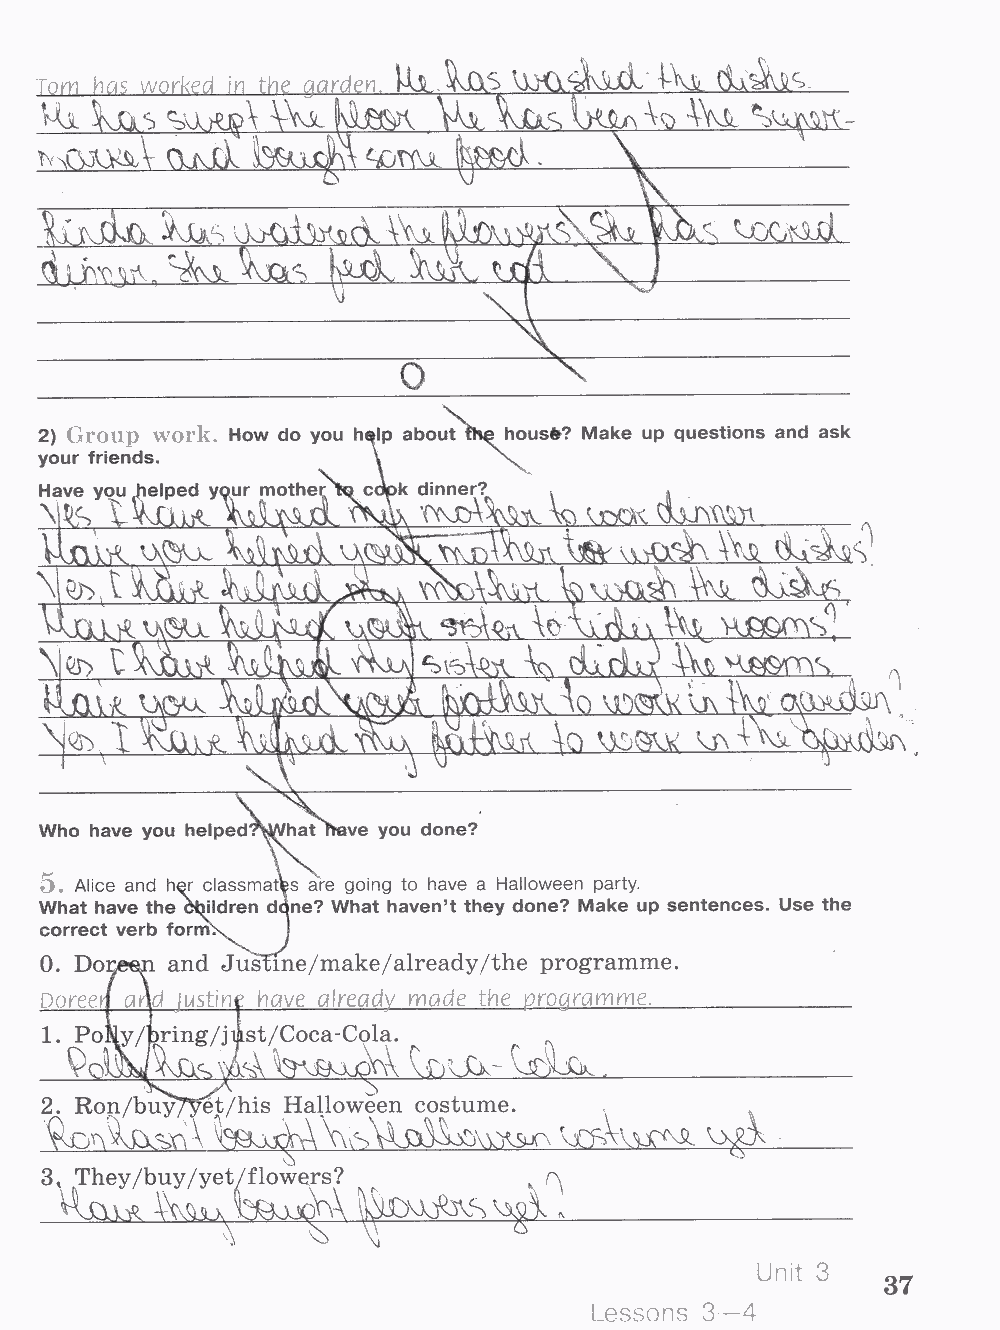 Tom has worked in the garden. He has washed the dishes.
He has swept the floor. He has been to the super-
market and bought some food.
Linda has watered the flowers. She has cooked
dinner. She has fed her cat
2) Group work. How do you help about the house? Make up questions and ask
your friends.
Have you helped your mother to cook dinner?
Yes, I have helped my mother to cook dinner
Have you helped your mother to wash the dishes?
Yes, I have helped my mother to wash the dishes
Have you helped your sister to tidy the rooms?
Yes, I have helped my sister to didey the rooms.
Have you helped your father to work in the garden?
Yes, I have helped my father to work in the garden.
Who have you helped? What have you done?
5. Alice and her classmates are going to have a Halloween party.
What have the children done? What haven't they done? Make up sentences. Use the
correct verb form.
0. Doreen and Justine/make/already/the programme.
Doreen and Justine have already made the programme.
1. Polly/bring/just/Coca-Cola.
Polly has just brought Coca-Cola.
2. Ron/buy/yet/his Halloween costume.
Ron hasn't bought his Halloween costume yet
3. They/buy/yet/flowers?
Have they bought flowers yet?
Unit 3
37
Lessons 3–4